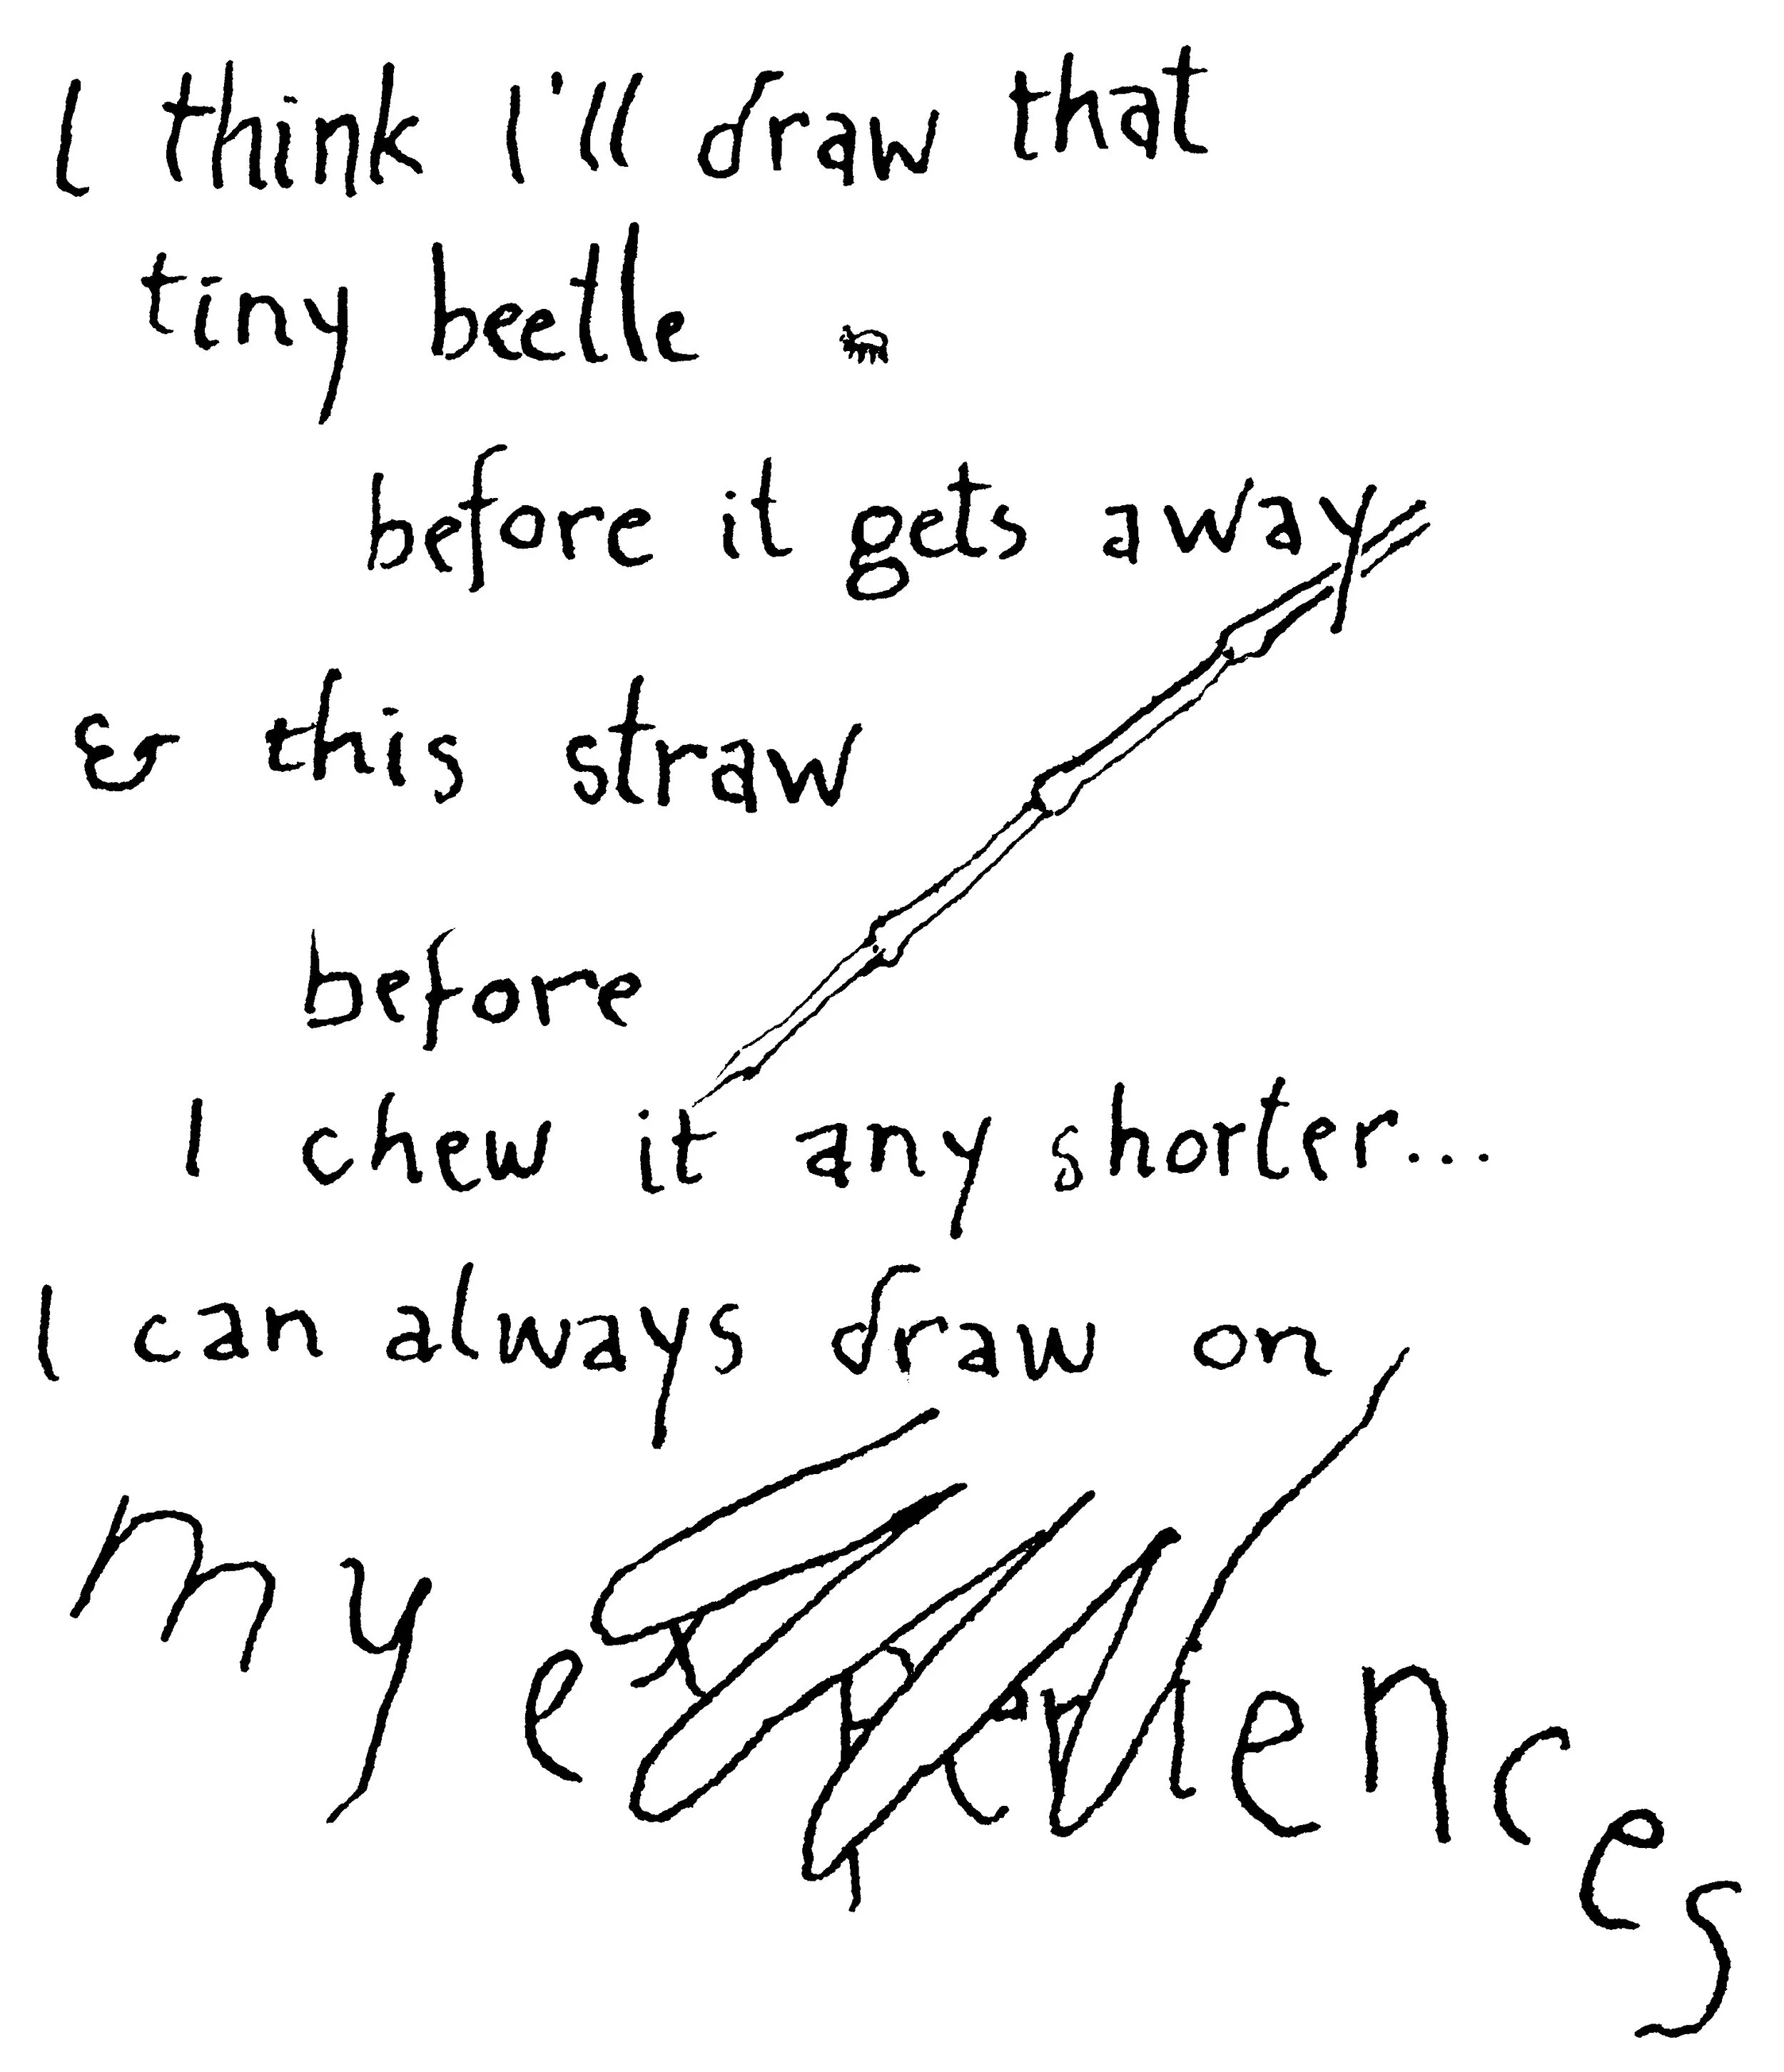 I think I'll draw that
tiny beetle
before it gets away
& this straw
before
I chew it any shorter...
I can always draw on
my experiences